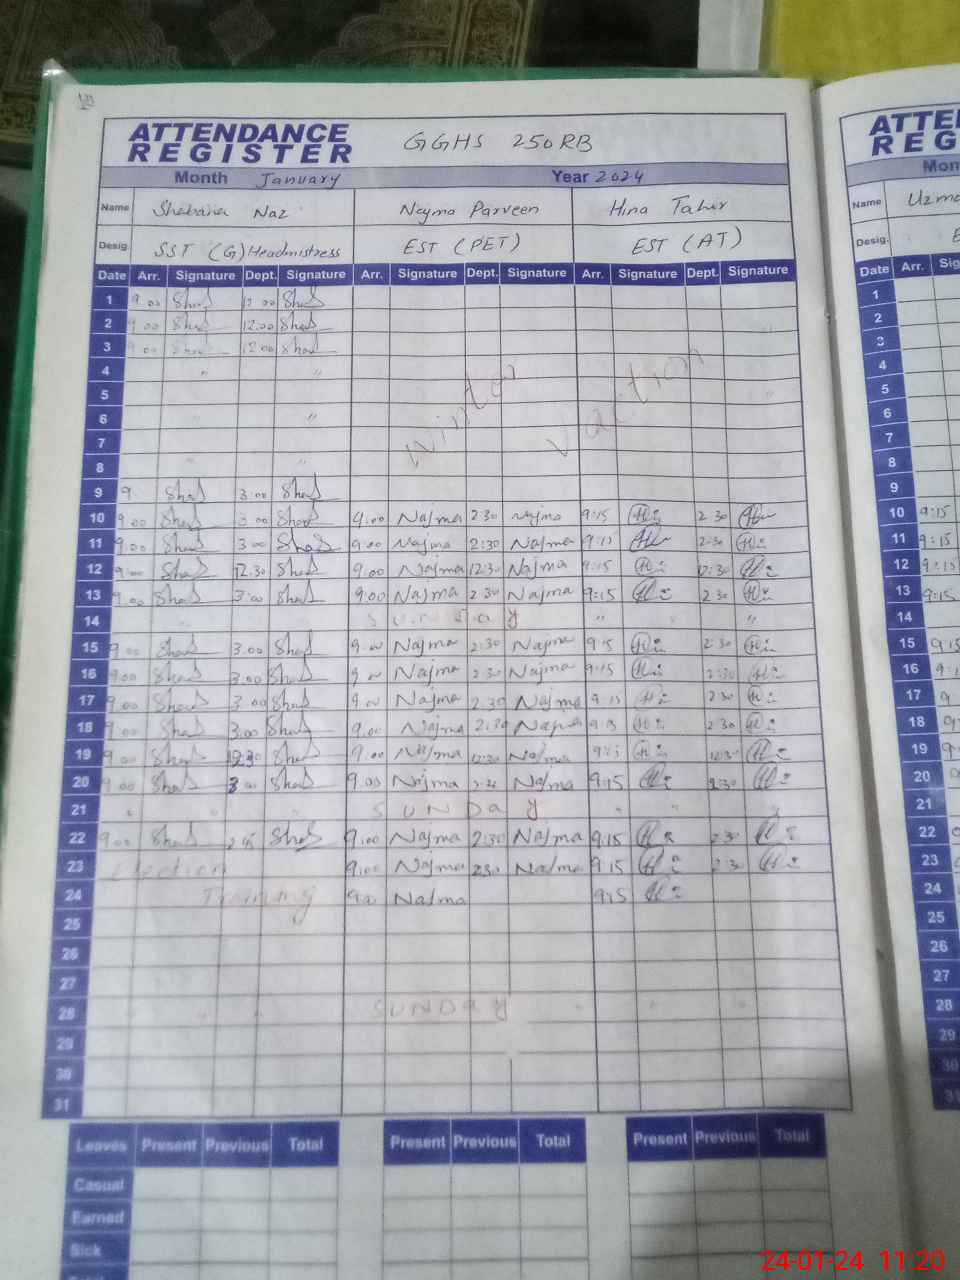 ATTENDANCE REGISTER GGHS 250RB
Month January Year 2024
Name Shabana Naz Najma Parveen Hina Tahir
Desig. SST (G) Headmistress EST (PET) EST (AT)
Date Arr. Signature Dept. Signature Arr. Signature Dept. Signature Arr. Signature Dept. Signature
1 9.00 Shad 12.00 Shad
2 9.00 Shad 12.00 Shad
3 9.00 Shad 12.00 Shad
4 " "
5 "
6 " "
7
8 " "
Winter Vacation
9 9 Shad 3.00 Shad
10 9.00 Shad 3.00 Shad 9:00 Najma 2:30 Najma 9:15 2:30
11 9:00 Shad 3.00 Shad 9:00 Najma 2:30 Najma 9:15 2:30
12 9:00 Shad 12.30 Shad 9:00 Najma 12:30 Najma 9:15 12:30
13 9.00 Shad 3:00 Shad 9:00 Najma 2:30 Najma 9:15 2:30
14 SUNDay " "
15 9.00 Shad 3.00 Shad 9.00 Najma 2:30 Najma 9:15 2:30
16 9.00 Shad 3.00 Shad 9.00 Najma 2:30 Najma 9:15 2:30
17 9.00 Shad 3.00 Shad 9.00 Najma 2.30 Najma 9:15 2:30
18 9.00 Shad 3.00 Shad 9.00 Najma 2:30 Najma 9:15 2:30
19 9.00 Shad 12.30 Shad 9.00 Najma 12:30 Najma 9:15 12:30
20 9.00 Shad 3.00 Shad 9.00 Najma 2:30 Najma 9:15 2:30
21 " " " SUNDay " "
22 9.00 Shad Shad 9:00 Najma 2:30 Najma 9:15 2:30
23 Election 9:00 Najma 2:30 Najma 9:15 2:30
24 Training 9:00 Najma 9:15
25
26
27
28 " " " SUNDay " " "
29
30
31
Leaves Present Previous Total Present Previous Total Present Previous Total
Casual
Earned
Sick
ATTE
REG
Mon
Name Uzma
Desig. E
Date Arr. Sig
1
2
3
4
5
6
7
8
9
10 9:15
11 9:15
12 9:15
13 9:15
14
15 9:15
16
17 9
18
19
20
21
22
23
24
25
26
27
28
29
30
24-01-24 11:20